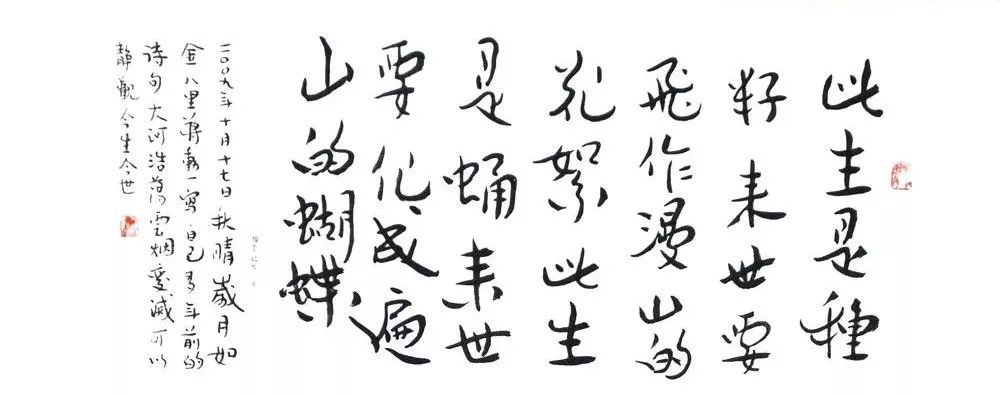 此生是種
籽来世要
飛作漫山的
花絮此生
是蛹来世
要化成遍
山的蝴蝶
二〇〇九年十月十七日秋晴歲月如
金八里蔣勳寫自己多年前的
诗句大河浩蕩雲烟變滅可以
靜觀今生今世